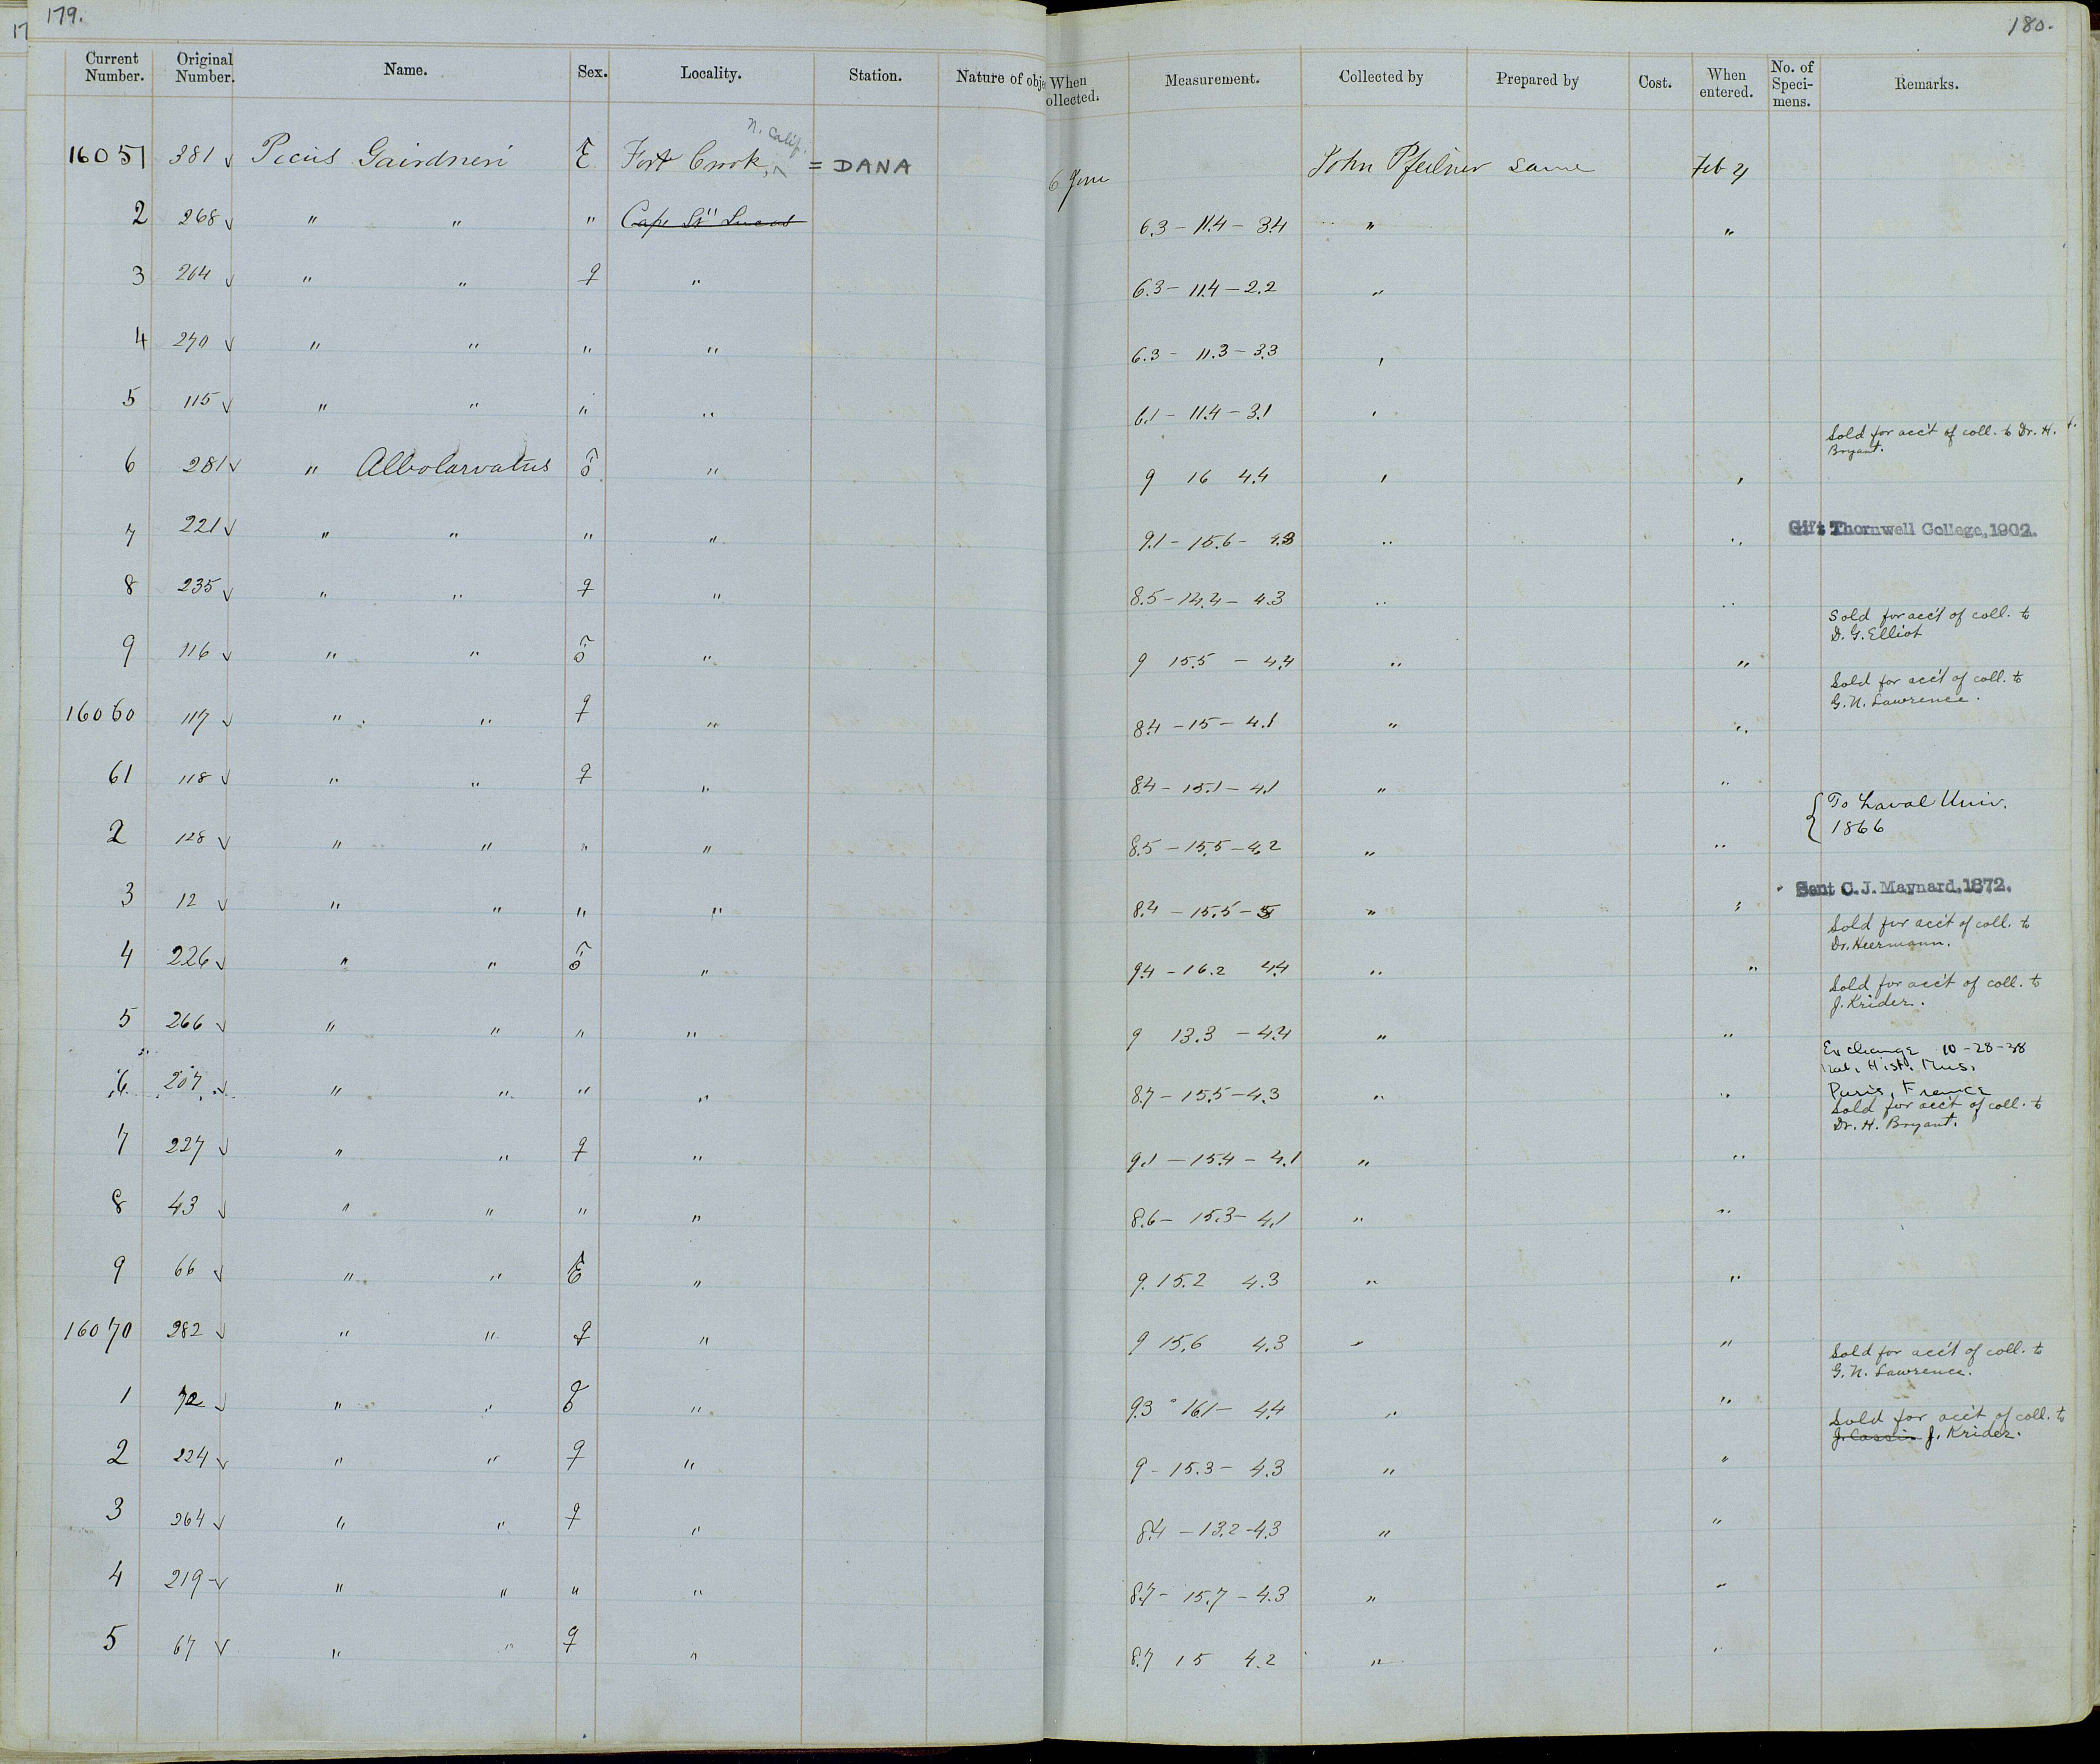 179.
180.
Current Number. Original Number. Name. Sex. Locality. Station. Nature of obje When ollected. Measurement. Collected by Prepared by Cost. When entered. No. of Speci-mens. Remarks.
n. Calif.
16051 381 ✓ Picus Gairdneri Fort Crook, = DANA 6 June John Pfeilner same Feb 4
2 268 ✓ " " " Cape St Lucas 6.3 - 11.4 - 3.4 " "
3 204 ✓ " " ♀ " 6.3 - 11.4 - 2.2 "
4 270 ✓ " " " " 6.3 - 11.3 - 3.3 "
5 115 ✓ " " " " 6.1 - 11.4 - 3.1 "
Sold for acc't of coll. to Dr. H. Bryant.
6 281 ✓ " Albolarvatus ♂ " 9 16 4.4 " "
7 221 ✓ " " " " 9.1 - 15.6 - 4.3 " " Gift Thornwell College, 1902.
8 235 ✓ " " ♀ " 8.5 - 14.4 - 4.3 " "
Sold for acc't of coll. to
D. G. Elliot
9 116 ✓ " " ♂ " 9 15.5 - 4.4 " "
Sold for acc't of coll. to
G. N. Lawrence.
16060 117 ✓ " " ♀ " 8.4 - 15 - 4.1 " "
61 118 ✓ " " ♀ " 8.4 - 15.1 - 4.1 " "
{ To Laval Univ.
1866
2 128 ✓ " " " " 8.5 - 15.5 - 4.2 " "
3 12 ✓ " " " " 8.4 - 15.5 - " " Sent C. J. Maynard, 1872.
Sold for acc't of coll. to
Dr. Heermann.
4 226 ✓ " " ♂ " 9.4 - 16.2 4.4 " "
Sold for acc't of coll. to
J. Krider.
5 266 ✓ " " " " 9 13.3 - 4.4 " "
Exchange 10-28-38
Nat. Hist. Mus.
Paris, France
6 207 ✓ " " " " 8.7 - 15.5 - 4.3 " "
Sold for acc't of coll. to
Dr. H. Bryant.
7 227 ✓ " " ♀ " 9.1 - 15.4 - 4.1 " "
8 43 ✓ " " " " 8.6 - 15.3 - 4.1 " "
9 66 ✓ " " " 9. 15.2 4.3 " "
16070 282 ✓ " " ♀ " 9 15.6 4.3 " "
Sold for acc't of coll. to
G. N. Lawrence.
1 72 ✓ " " " 9.3 " 16.1 - 4.4 " "
Sold for acc't of coll. to
J. Cassin J. Krider.
2 224 ✓ " " ♀ " 9 - 15.3 - 4.3 " "
3 264 ✓ " " ♀ " 8.4 - 13.2 - 4.3 " "
4 219 ✓ " " " " 8.7 - 15.7 - 4.3 " "
5 67 ✓ " " ♀ " 8.7 15 4.2 " "